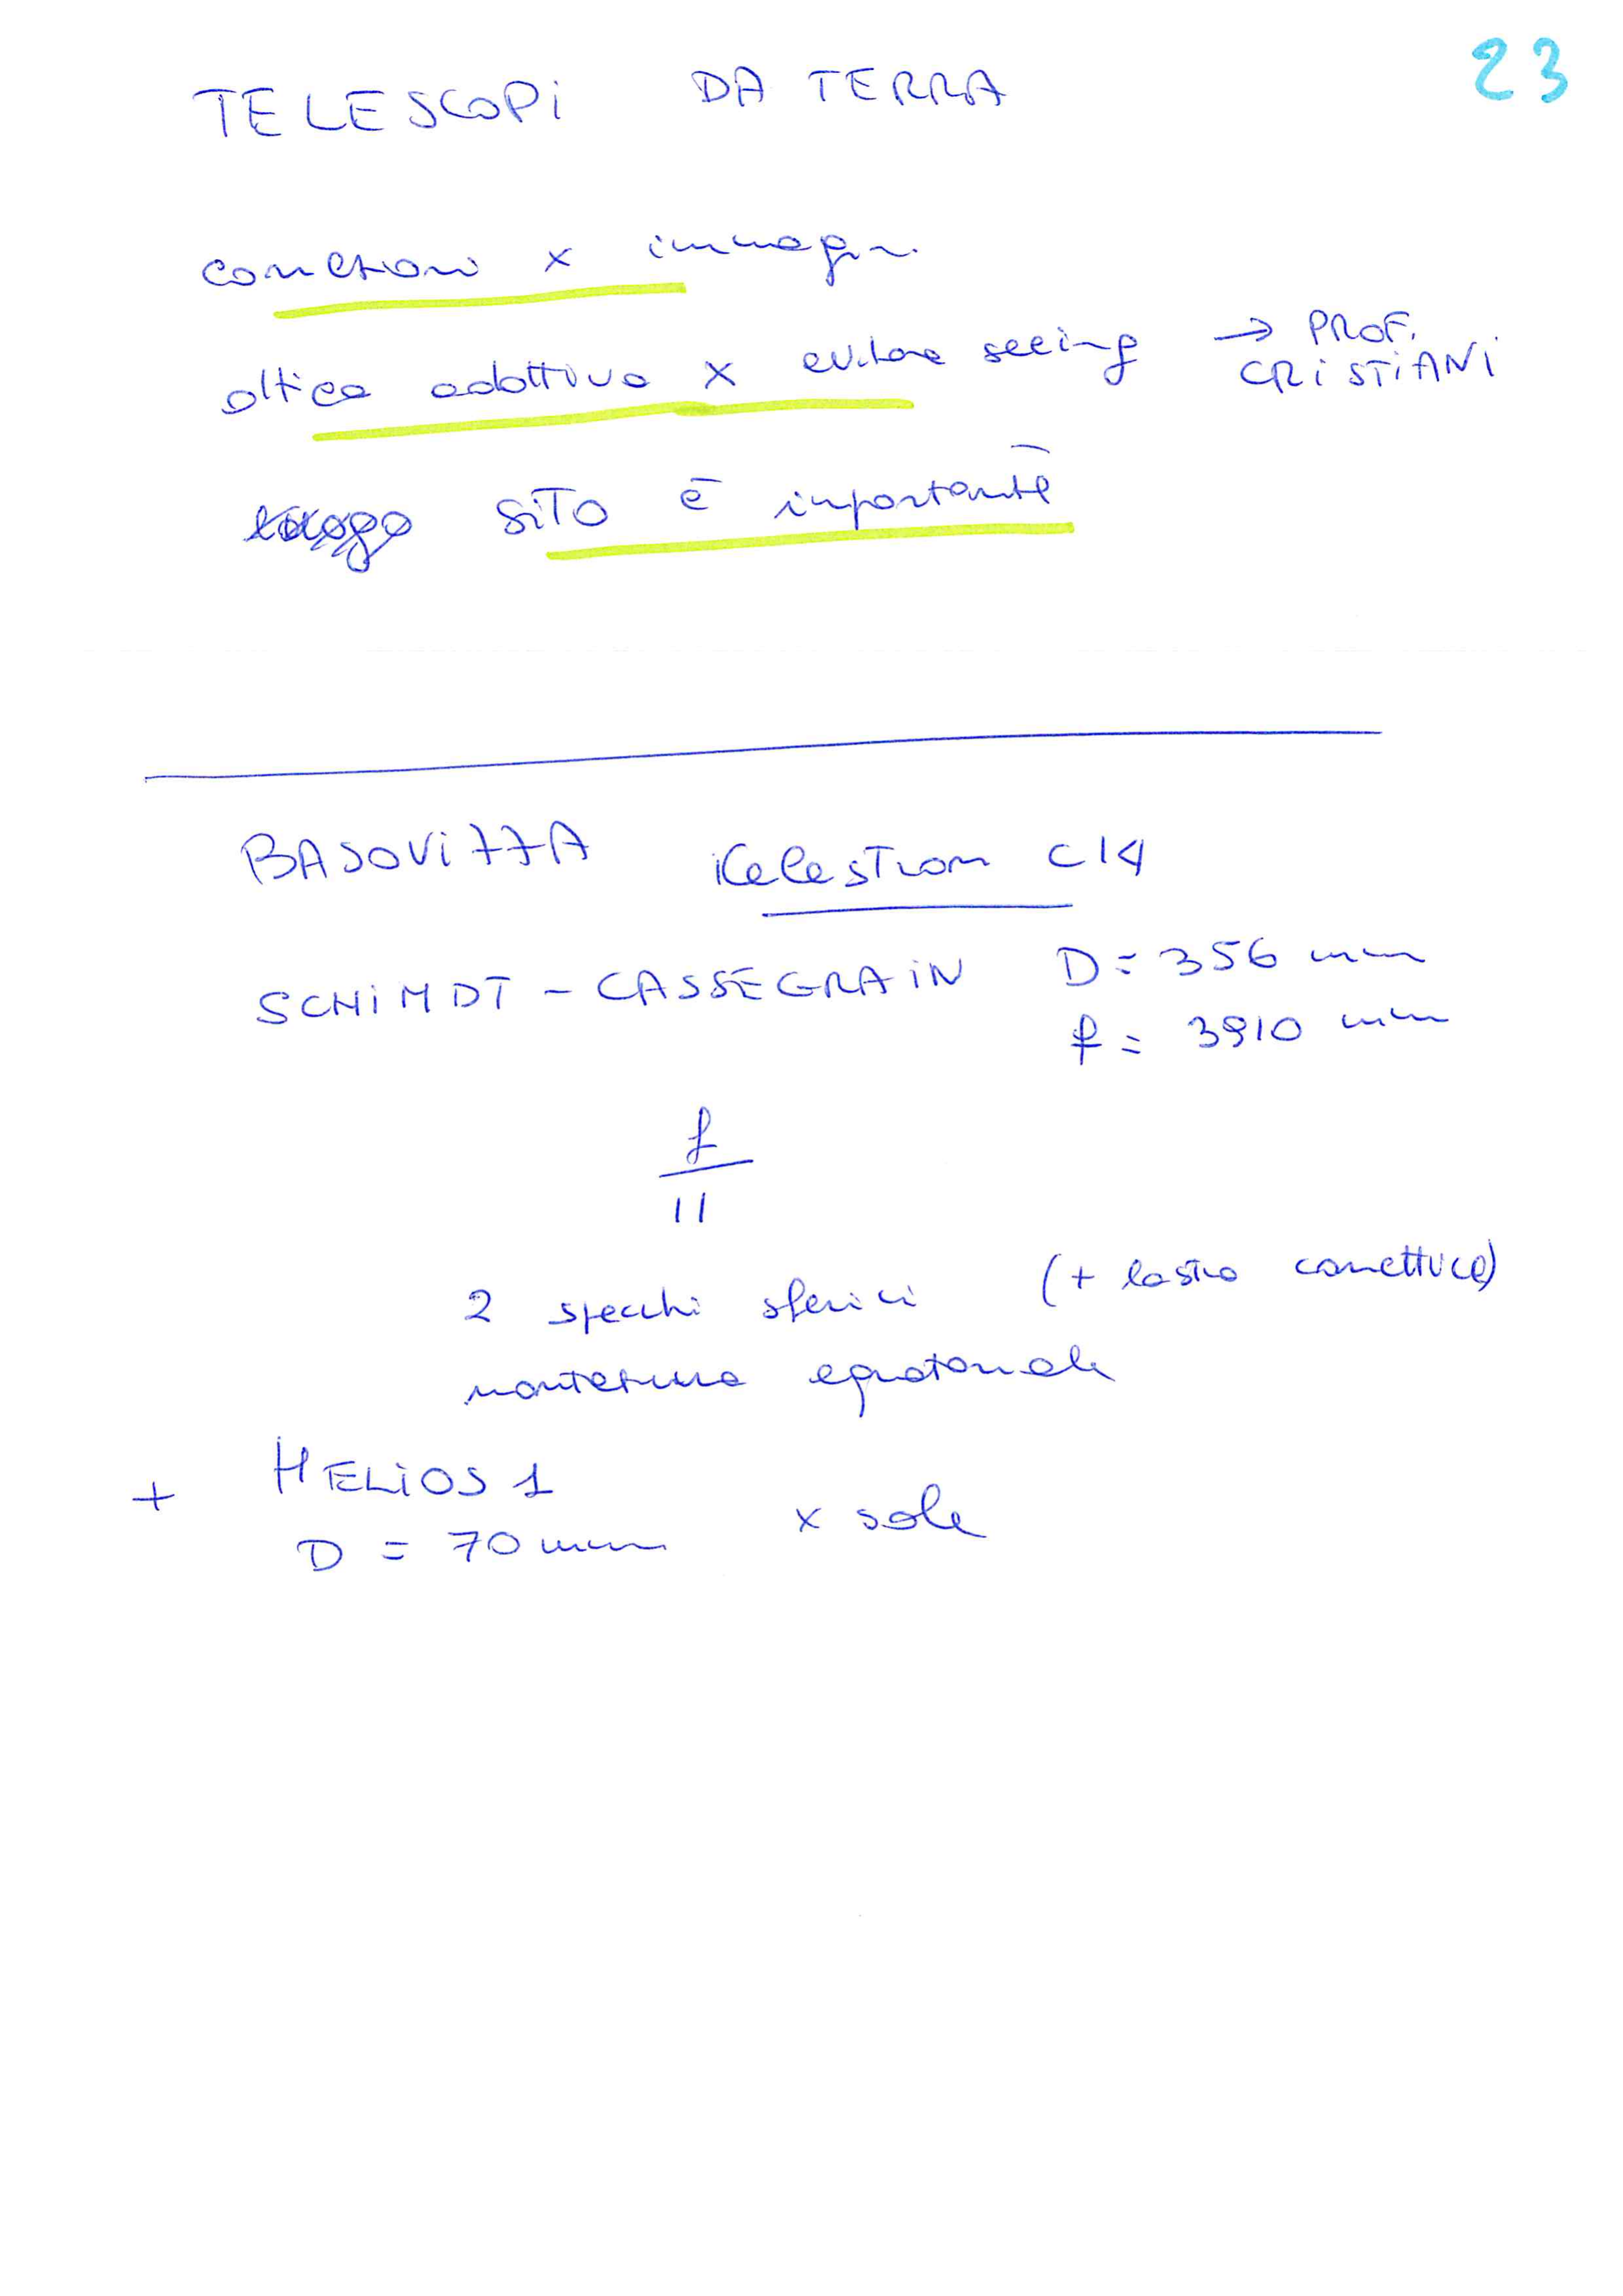 23
TELESCOPi DA TERRA
correzioni x immagini
ottica adattiva x evitare seeing → PROF. CRiSTiANi
luogo SiTO è importante
BASOViZZA Celestron C14
SCHiMDT - CASSEGRAiN D = 356 mm
f = 3910 mm
f
11
2 specchi sferici (+ lastra correttrice)
montatura equatoriale
+ HELiOS 1
D = 70 mm x sole